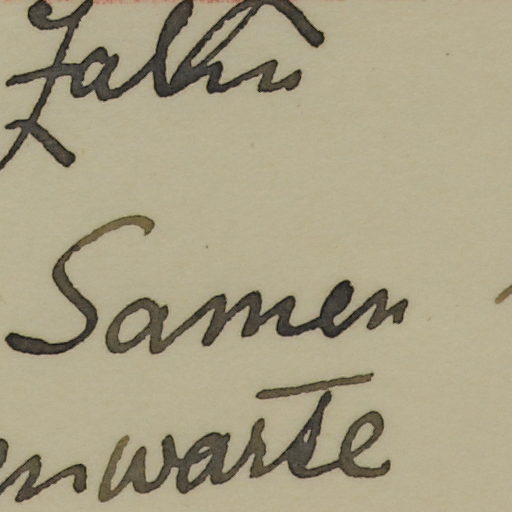 Zahn
Samen
enwarte